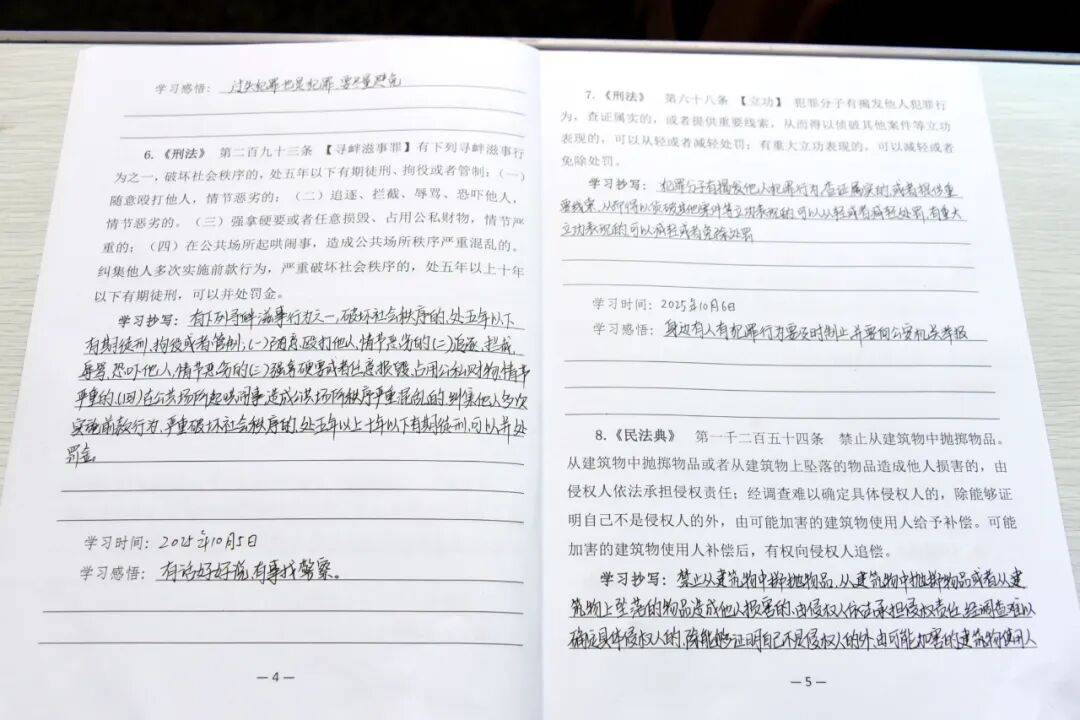 学习感悟：过失犯罪也是犯罪，要尽量避免
6.《刑法》 第二百九十三条 【寻衅滋事罪】有下列寻衅滋事行
为之一，破坏社会秩序的，处五年以下有期徒刑、拘役或者管制：（一）
随意殴打他人，情节恶劣的；（二）追逐、拦截、辱骂、恐吓他人，
情节恶劣的。（三）强拿硬要或者任意损毁、占用公私财物，情节严
重的；（四）在公共场所起哄闹事，造成公共场所秩序严重混乱的。
纠集他人多次实施前款行为，严重破坏社会秩序的，处五年以上十年
以下有期徒刑，可以并处罚金。
学习抄写：有下列寻衅滋事行为之一,破坏社会秩序的,处五年以下
有期徒刑,拘役或者管制;(一)随意殴打他人,情节恶劣的(二)追逐,拦截,
辱骂,恐吓他人,情节恶劣的(三)强拿硬要或者任意损毁,占用公私财物,情节
严重的,(四)在公共场所起哄闹事造成公共场所秩序严重混乱的,纠集他人多次
实施前款行为,严重破坏社会秩序的,处五年以上十年以下有期徒刑,可以并处
罚金
学习时间：2025年10月5日
学习感悟：有话好好说,有事找警察。
— 4 —
7.《刑法》 第六十八条 【立功】 犯罪分子有揭发他人犯罪行
为，查证属实的，或者提供重要线索，从而得以侦破其他案件等立功
表现的，可以从轻或者减轻处罚；有重大立功表现的，可以减轻或者
免除处罚。
学习抄写：犯罪分子有揭发他人犯罪行为,查证属实的,或者提供重
要线索,从而得以侦破其他案件等立功表现的可以从轻或者减轻处罚,有重大
立功表现的可以减轻或者免除处罚
学习时间：2025年10月6日
学习感悟：身边有人有犯罪行为要及时制止,并要向公安机关举报
8.《民法典》 第一千二百五十四条 禁止从建筑物中抛掷物品。
从建筑物中抛掷物品或者从建筑物上坠落的物品造成他人损害的，由
侵权人依法承担侵权责任；经调查难以确定具体侵权人的，除能够证
明自己不是侵权人的外，由可能加害的建筑物使用人给予补偿。可能
加害的建筑物使用人补偿后，有权向侵权人追偿。
学习抄写：禁止从建筑物中抛物品,从建筑物中抛掷物品或者从建
筑物上坠落的物品造成他人损害的,由侵权人依法承担侵权责任,经调查难以
确定具体侵权人的,除能够证明自己不是侵权人的外,由可能加害的建筑物使用人
— 5 —